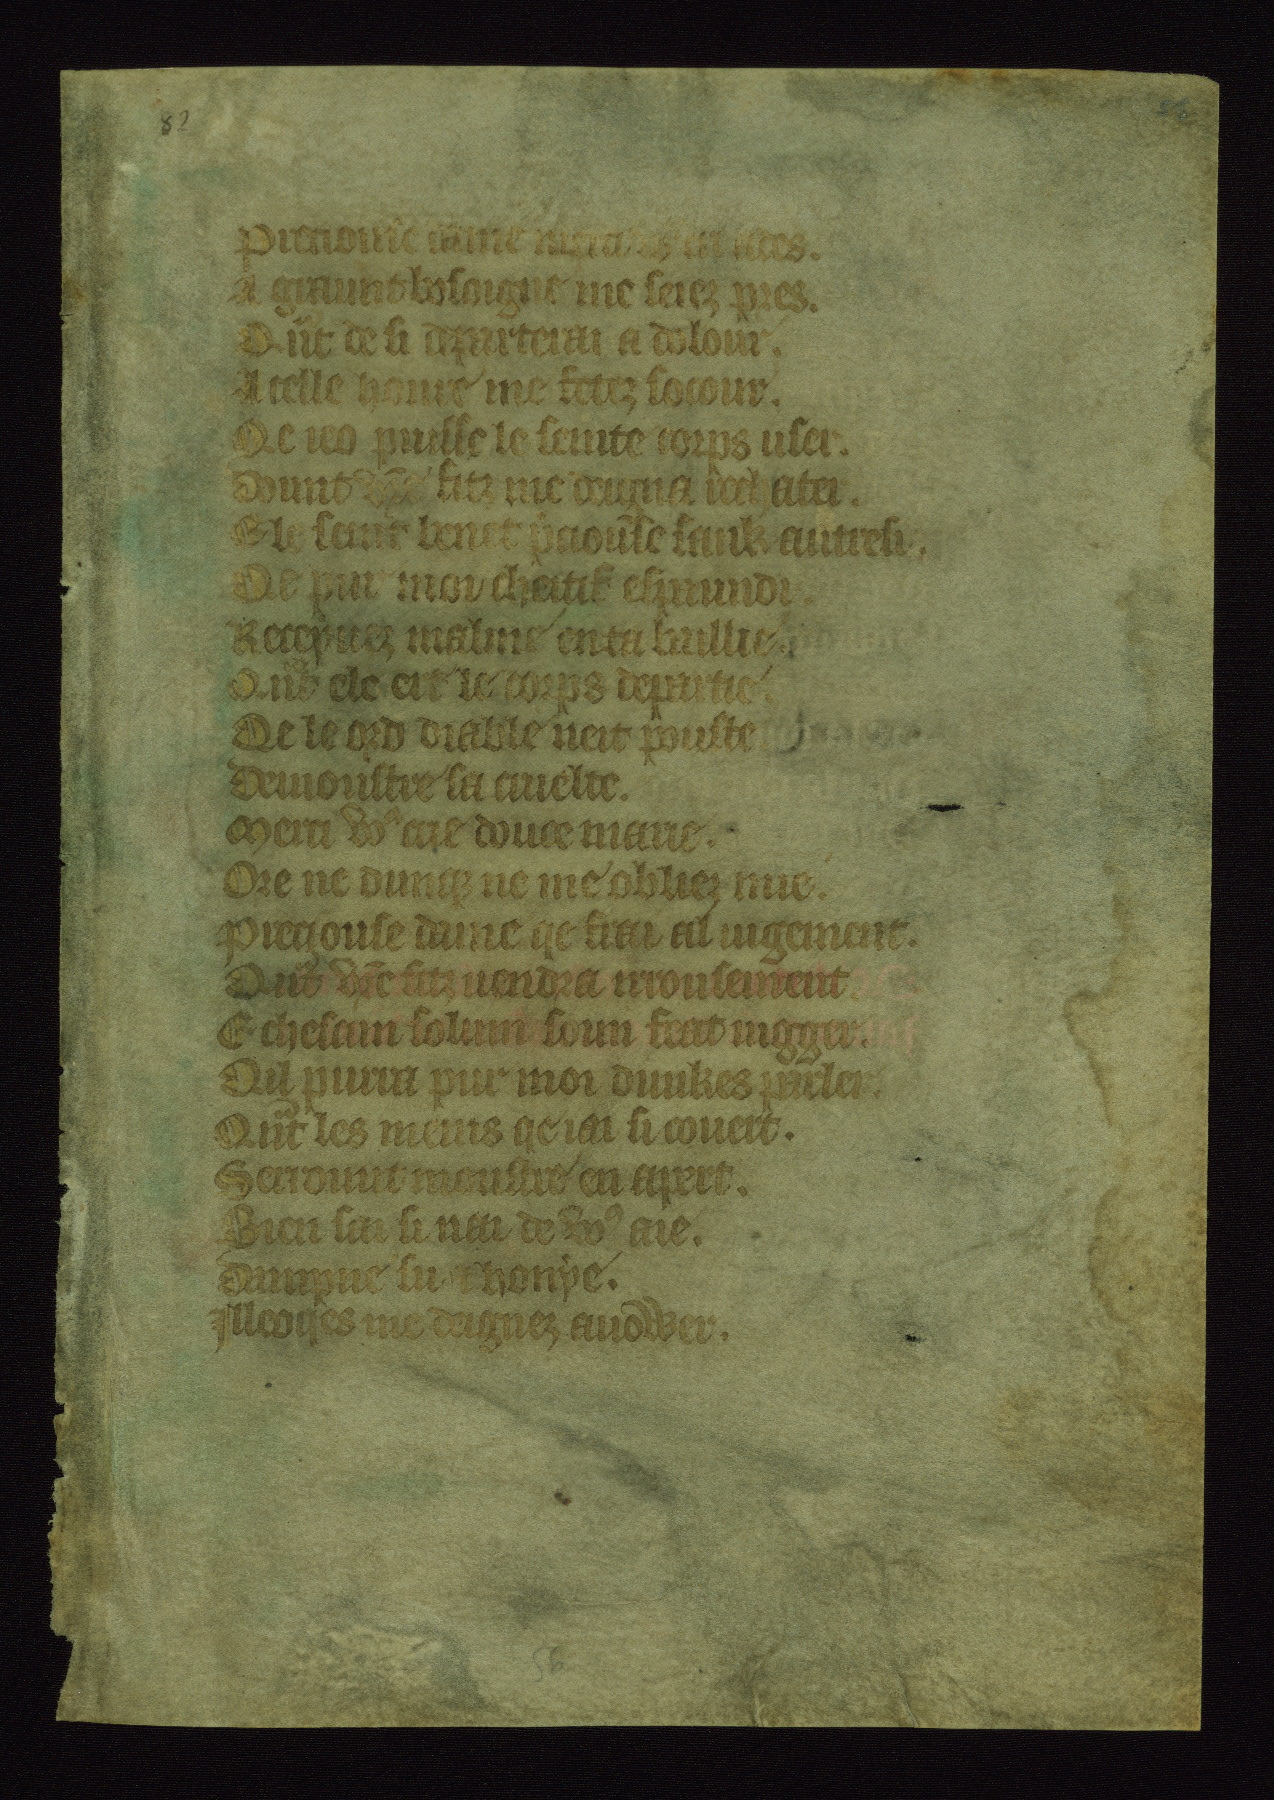 82
A graunt bosoigne me seiez pres.
Qn̄t de si departerai a dolour.
A celle houre me fetez socour.
Qe ieo puisse le seinte corps user.
Dunt vr̄e fitz me deigna rechater.
E le seint benet p̄ciouse sank autresi.
Qe pur moi cheitif espaundi.
Receyuez malme en ta baillie.
Qn̄t ele ert le corps departie.
Qe le ord diable neit pouste
Demoustre sa cruelte.
Merci vo᷒ crie douce marie.
Ore ne dunqȝ ne me obliez mie.
Preciouse dame qe frai al iugement.
Qn̄t vr̄e fitz uendra irrousement.
E chescun solum soun feat iugger.
Qil purra pur moi dunkes parler.
Qn̄t les mems qe iai si couert.
Serrount moustre en apert.
Bien sai si nai de vo᷒ aie.
Dampne su honye.
Illeoqes me deignez auower.
56